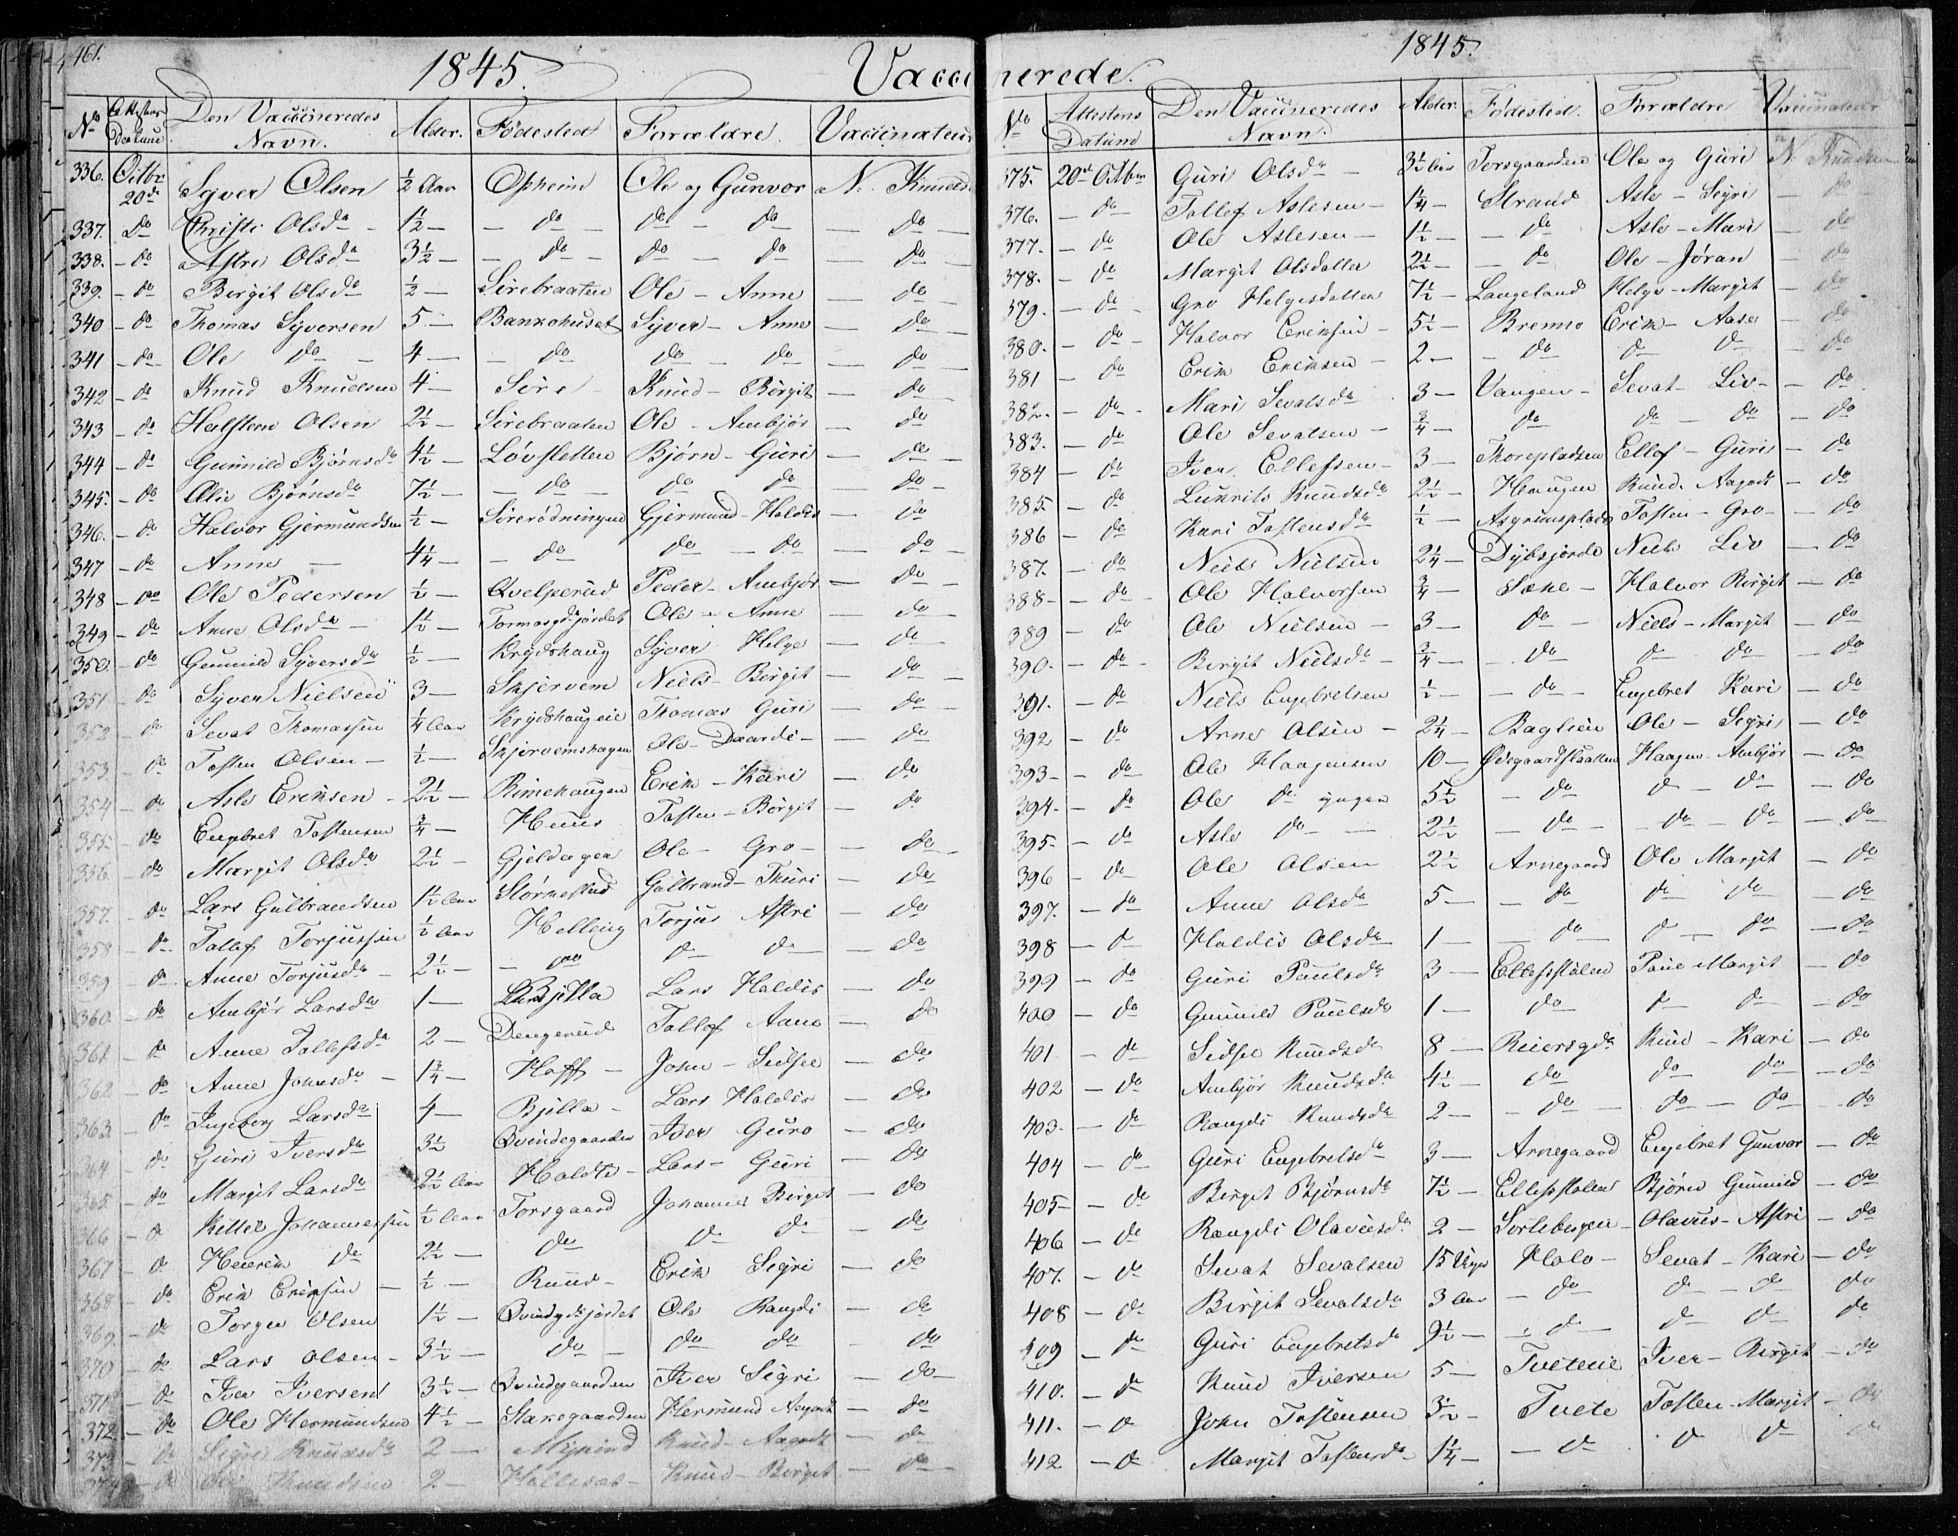 461.
1845. Vaccinerede. 1845.
No Attestens Datum Den Vaccineredes Navn. Alder. Fødested Forældre. Vaccinateur
336. Octbr 20de Syver Olsen ½ Aar Opheim Ole og Gunvor N. Knudsen
337. Do Christi Olsda 1½ — do do — do — do —
338. — do Astri Olsda 3½ — do — do — do — do —
339. — do Birgit Olsda ½ — Sirebraaten Ole — Anne — do
340 — do Thomas Syversen 5 — Bankehuset Syver — Anne — do
341 — do Ole do — 4 — do do — do — do
342 — do Knud Knudsen 4 — Sire Knud — Birgit — do
343 — do Halsten Olsen 2½ — Sirebraaten Ole — Ambjør — do
344 — do Gunnild Bjørnsda 4½ — Løvsletten Bjørn — Guri — do
345. — do Olie Bjørnsda 7½ — do — do do — do —
346. — do Halvor Gjermundsen ½ — Sirerødningen Gjermund — Haldis — do
347 — do Anne — 4¼ — do do — do — do —
348 — do Ole Pedersen ½ — Qvelperud Peder — Ambjør — do —
349 — do Anne Olsda — 1½ — Tormosgdsjordet Ole — Anne — do
350. — do Gunnild Syversda ½ — Krydshaug Syver Helge — do
351 — do Syver Nielsen 3 — Skjervem Niels — Birgit — do —
352 — do Sevat Thomassen ¼ Aar Krydshaugeie Thomas Guri — do
353. — do Tosten Olsen — ½ — Skjervemshagen Ole — Daardi — do
354 — do Asle Eriksen — 2½ — Rimehaugen Erik — Kari — do
355. — do Engebret Tostensen ¾ — Huus Tosten — Birgit — do
356. — do Margit Olsda 2½ — Gjeldager Ole — Gro — do
357. — do Lars Gulbrandsen 1½ Aar Størkestad Gulbrand — Thuri — do
358 — do Tollef Torjussen ½ Aar Helling Torjus Astri — do
359 — do Anne Torjusda — 2½ — do do do — do
360. — do Ambjør Larsda 1 — Bjella Lars Haldis — do
361 — do Anne Tollefsda 2 — Dengerud Tollef Aane — do
362 — do Anne Johnsda — 1¾ — Hoff — John — Sidsee — do
363 — do Ingeborg Larsda 4 — Bjella — Lars Haldis — do
364 — do Guri Iversda 3½ Qvindegaarden Iver Guro — do
365 — do Margit Larsda 2½ Aar Holdte — Lars — Guri — do
366 — do Kittel Johannessen ½ Aar Torsgaard Johannes Birgit — do
367 — do Henrik do 2½ — do do do — do
368 — do Erik Eriksen — ½ — Ruud — Erik Sigri — do
369 — do Torger Olsen 1½ — Qvindgdsjordet Ole Rangdi — do
370 — do Lars Olsen — 3½ — do — do do — do
371 — do Iver Iversen 3½ — Qvindgaarden Iver Sigri — do —
372 — do Ole Hermundsen 4½ — Stakegaarden Hermund Aagodt — do
373 — do Sigri Knudsda 2 — Myrind Knud — Aagodt — do
374 — do Knudsen 2 — Hallesat — Knud — Birgit — do —
No Attestens Datum Den Vaccineredes Navn. Alder. Fødested. Forældre Vaccinateur
375. 20de Octbr Guri Olsda 3½ Aar Torsgaarden Ole og Guri N Knudsen
376. — do — Tollef Aslesen — 1¼ — Strand Asle — Sigri — do
377. — do Ole Aslesen — 1½ — do Asle — Mari — do
378. — do Margit Olsdatter 2½ — do Ole — Jøran — do
379. — do Gro Helgesdatter 7½ — Langeland Helge — Margit — do
380. — do — Halvor Eriksen — 5½ — Brenno Erik — Aase — do
381 — do Erik Eriksen — 2 — do do do — do
382. — do — Mari Sevatsda 3 — Vangen — Sevat — Liv — do
383. — do Ole Sevatsen — ¾ — do do — do — do
384 — do Iver Ellefsen — 3 — Thorepladsen Ellef — Guri — do
385. — do Lukrits Knudsda 2½ — Haugen Knud. Aagodt — do
386 — do Kari Tostensda ½ — Asgrimsplads Tosten — Gro — do
387. — do Niels Nielsen 2¼ — Dybsjorde Niels Liv — do
388 — do — Ole Halvorsen ¾ — Sæke — Halvor Birgit — do
389 — do Ole Nielsen — 3 — do — Niels — Margit — do
390. — do Birgit Nielsda — ¾ — do do do — do
391. — do Niels Engebretsen ½ — do — Engebret Kari — do
392 — do Arne Olsen — 2¼ — Baglien Ole — Sigri — do
393 — do Ole Haagensen 10 — Ødegaardslaatten Haagen — Ambjør — do
394. — do Ole do yngre 5½ — do do — do — do
395 — do Asle do — 2½ — do — do — do — do —
396 — do Ole Olsen 2½ Arnegaard Ole Margit — do
397. — do Anne Olsda 5 — do do do — do
398 — do Haldis Olsda 1 — do do — do — do
399 — do Guri Paulsda 3 — Ellefsstølen Paul Margit — do
400 — do Gunnild Paulsda 1 — do do do — do
401. — do Sidsee Knudsda 8 — Reiersgd Knud — Kari — do
402 — do Ambjør Knudsda 4½ — do do do — do
403 — do Rangdi Knudsda 2 — do — do — do — do
404 — do Guri Engebretsda 3 — Arnegaard Engebret Gunvor — do
405 — do Birgit Bjørnsda 7½ — Ellefsstølen Bjørn Gunnild — do
406 — do Rangdi Olavusda 2 — Sorteberget — Olavus — Astri — do
407. — do Sevat Sevatsen 15 Uger Holo — Sevat — Kari — do
408 — do Birgit Sevatsda 3 Aar — do do — do do
409 — do Guri Engebretsda 9½ — do — do do do
410. — do Knud Iversen 5 — Tveteie Iver — Birgit — do
411. — do John Tostensen 3½ — Tvete Tosten — Margit — do
412 — do Margit Tostensda — 1¼ — do do do do